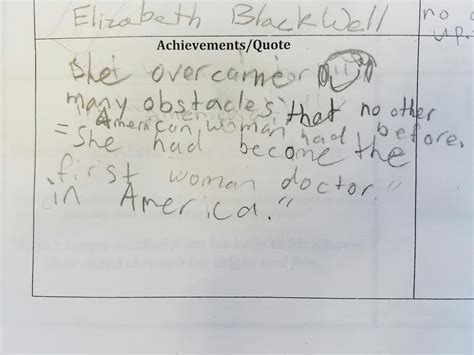 Elizabeth Blackwell
no
up.
Achievements/Quote
She overcame
many obstacles that no other
American woman had before.
= She had become the
first woman doctor."
in America."